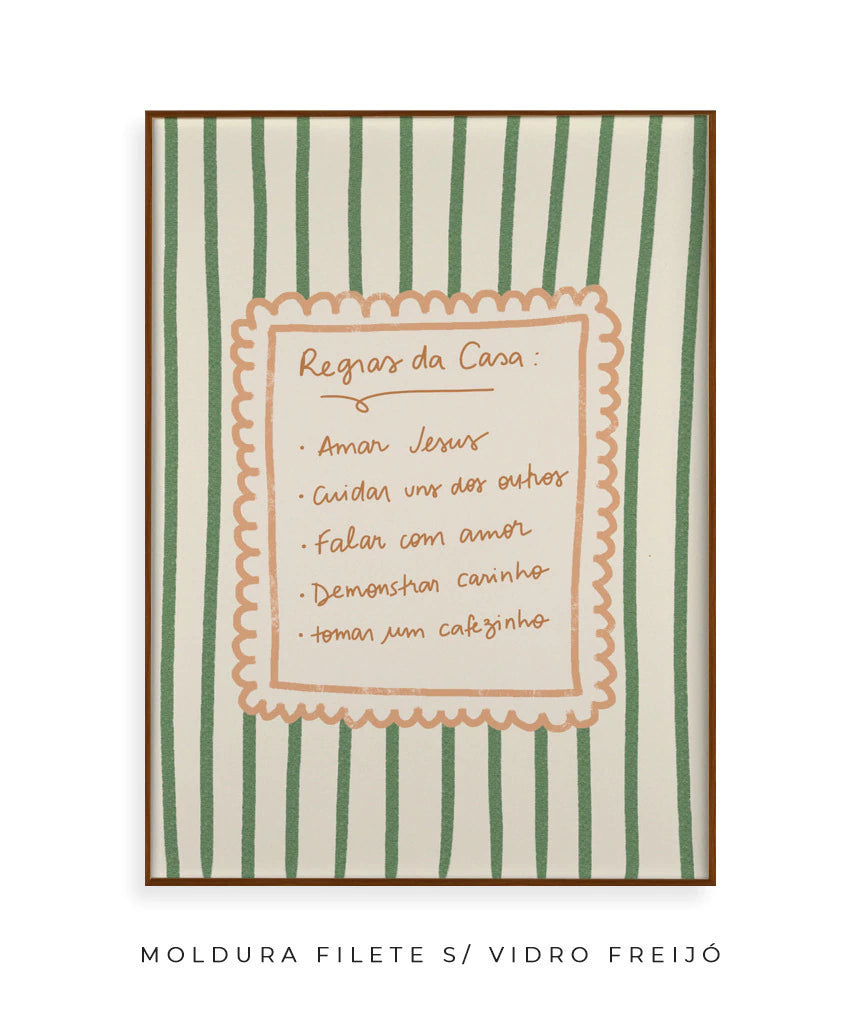 Regras da Casa:
• Amar Jesus
• Cuidar uns dos outros
• Falar com amor
• Demonstrar carinho
• tomar um cafezinho
MOLDURA FILETE S/ VIDRO FREIJÓ